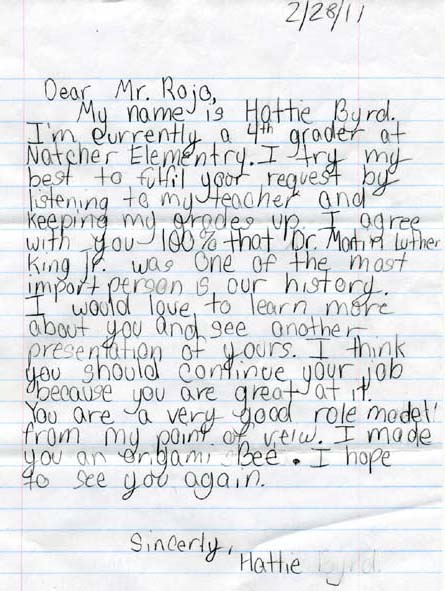 2/28/11
Dear Mr. Rojo,
My name is Hattie Byrd.
I'm currently a 4th grader at
Natcher Elementry. I try my
best to fulfil your request by
listening to my teacher and
keeping my grades up. I agree
with you 100% that Dr. Martin Luther
King jr. was one of the most
import person is our history.
I would love to learn more
about you and see another
presentation of yours. I think
you should continue your job
because you are great at it.
You are a very good role model!
from my point of veiw. I made
you an origami Bee. I hope
to see you again.
Sincerly,
Hattie Byrd